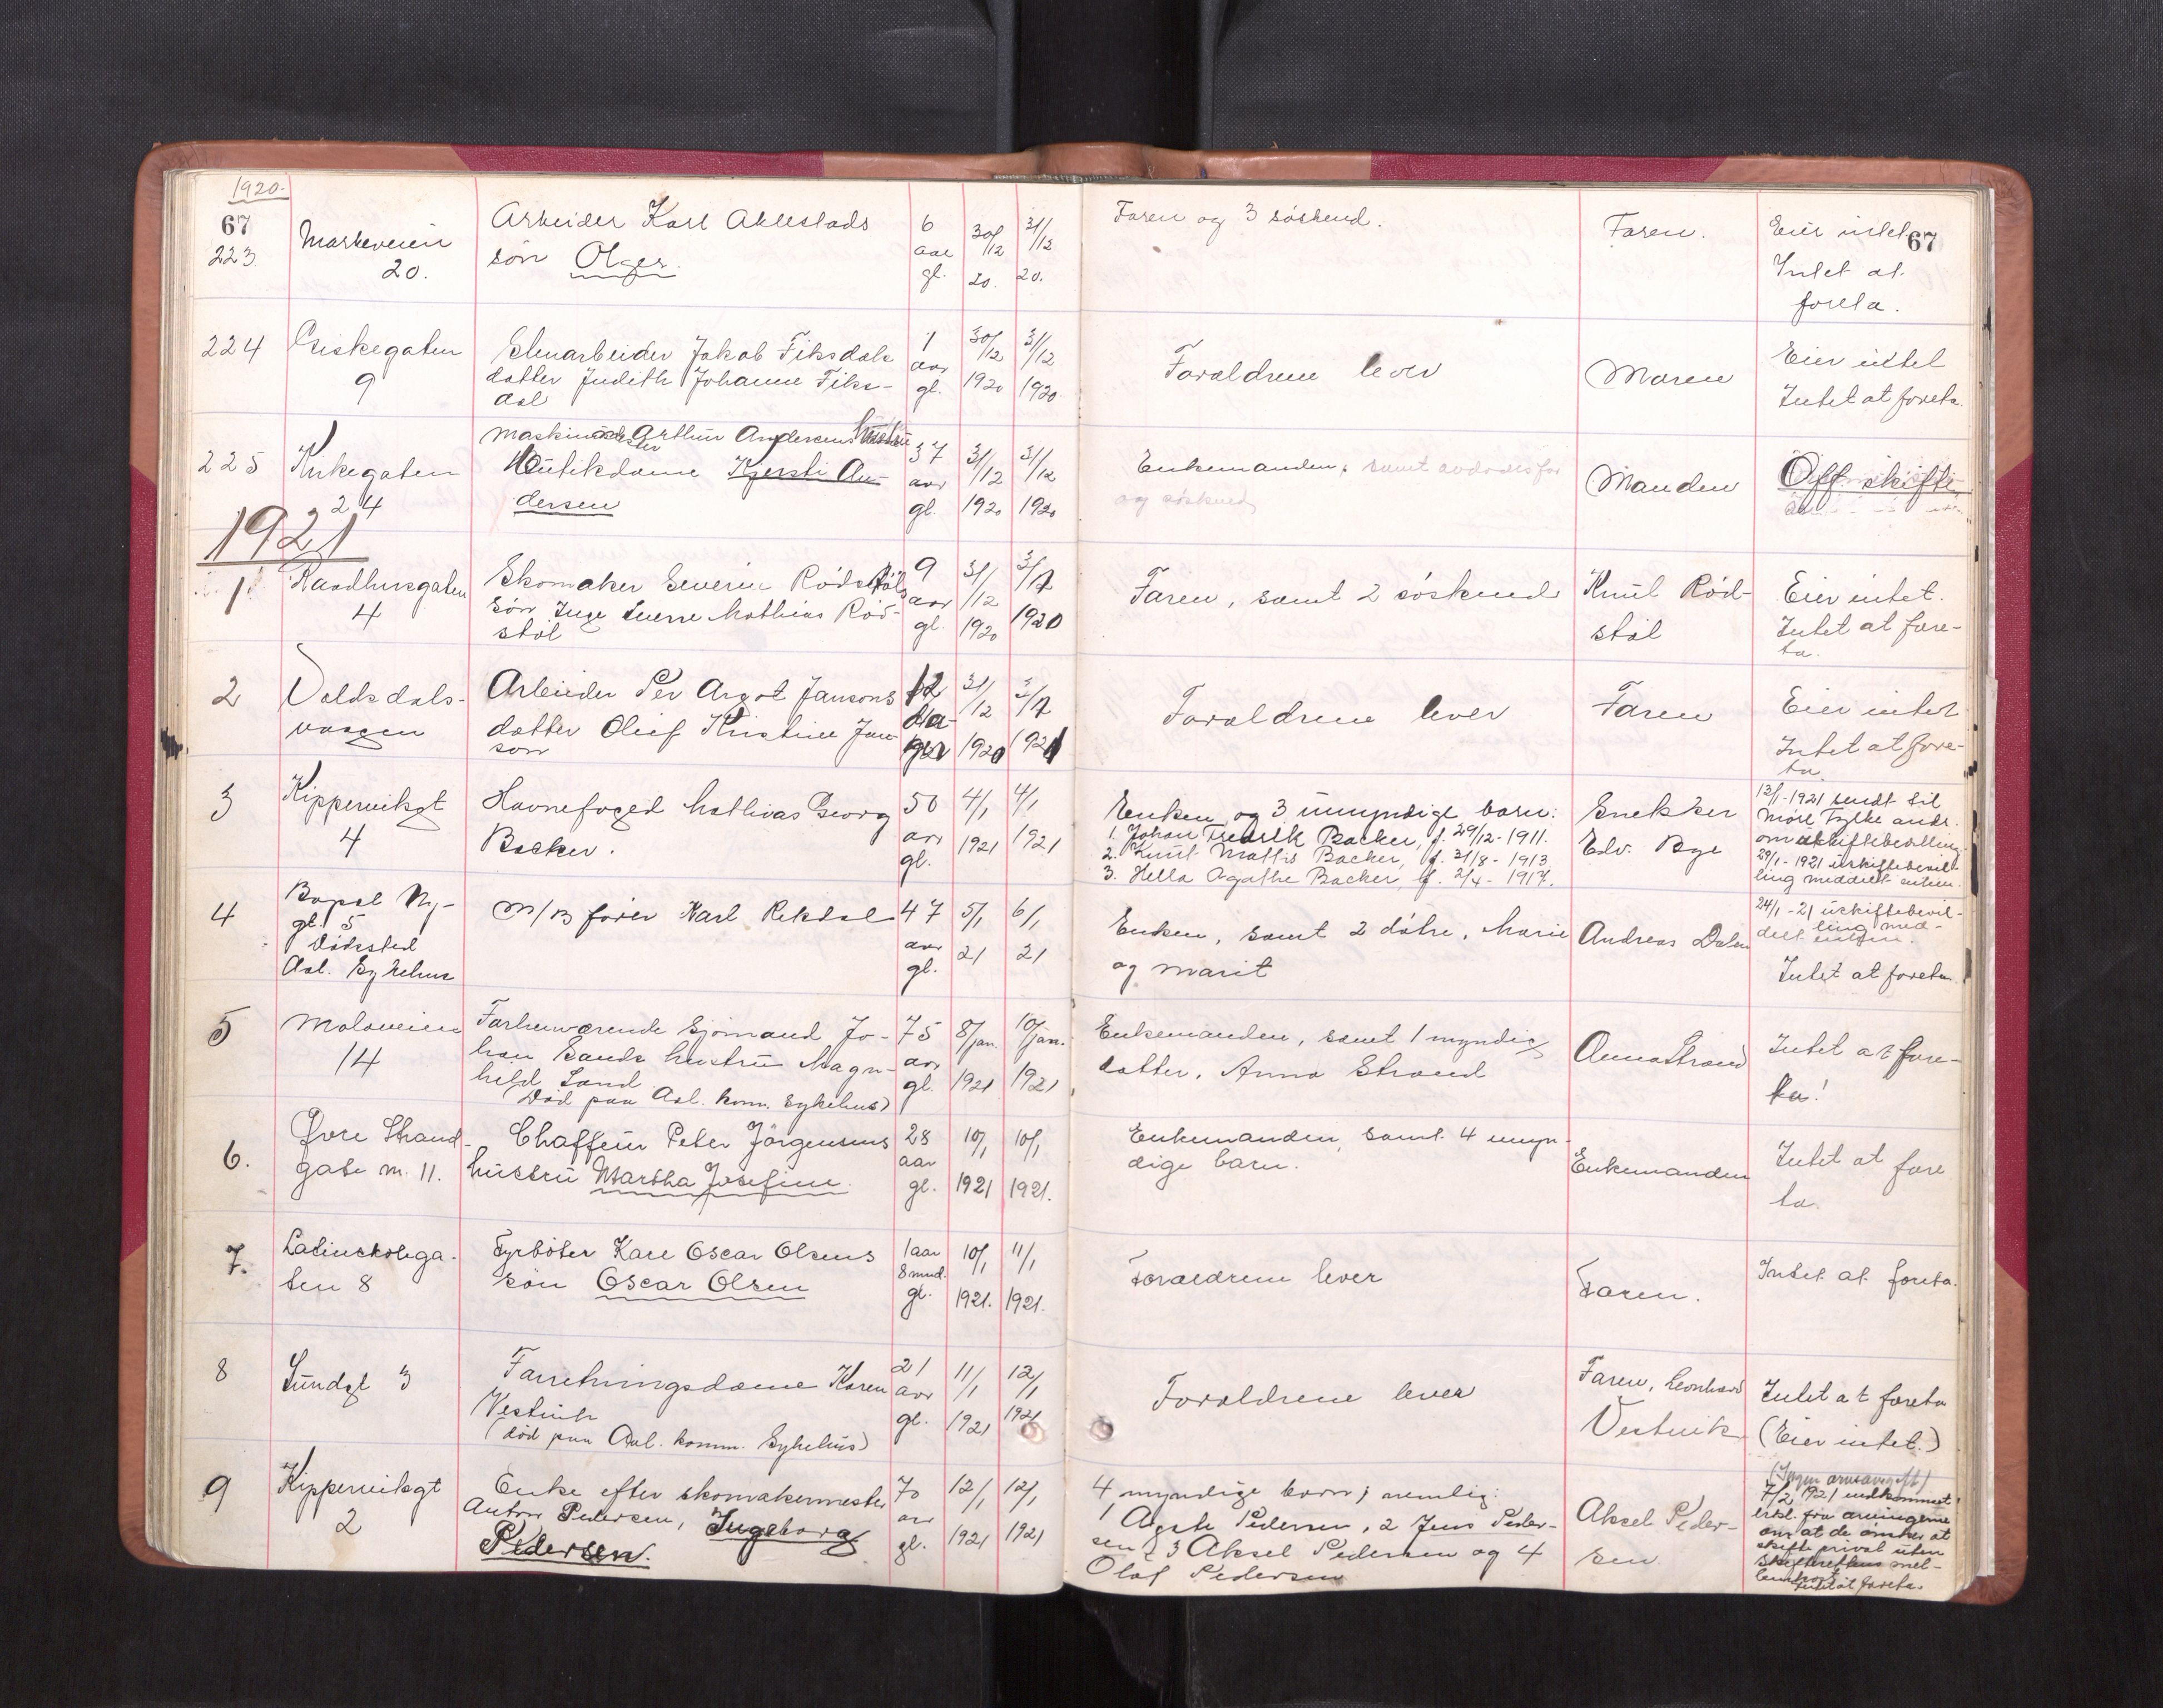 1920.
67
223. Markeveien 20. Arbeider Karl Aklestads søn Olger. 6 aar gl. 30/12 20. 31/12 20. Faren og 3 søskend. Faren. Eier intet. Intet at foreta.
67
224 Giskegaten 9 Stenarbeider Jakob Fiksdals datter Judith Johanne Fiksdal 1 aar gl. 30/12 1920 31/12 1920 Forældrene lever Moren Eier intet Intet at foreta.
225 Kirkegaten 24 Maskinmester Arthur Andersens hustru Butikdame Kjersti Andersen 37 aar gl. 31/12 1920 31/12 1920 Enkemanden, samt avdødes far og søskend Manden Off. skifte
1921
1 Raadhusgaten 4 Skomaker Severin Rødstøls søn Inge Sverre Mathias Rødstøl 9 aar gl. 31/12 1920 3/1 1920 Faren, samt 2 søskende Knut Rødstøl Eier intet. Intet at foreta.
2 Voldsdalsvaagen Arbeider Per Argot Jansons datter Oluf Kristine Janson 12 dager 31/12 1920 3/1 1921 Forældrene lever Faren Eier intet Intet at foreta.
3 Kipperviksgt 4 Havnefoged Mathias Georg Backer. 50 aar gl. 4/1 1921 4/1 1921 Enken og 3 umyndige barn:
1. Johan Fredrik Backer, f. 29/12-1911.
2. Knut Mattis Backer, f. 31/8-1913.
3. Hella Agathe Backer, f. 2/4-1917.
Snekker Edv. Bye 13/1-1921 sendt til Møre Fylke ands. om uskiftebevilling. 29/1-1921 uskiftebevilling meddelt enken.
4 Bopæl Nygt. 5 Dødssted Aal. Sykehus M/B fører Karl Rekdal 47 aar gl. 5/1 21 6/1 21 Enken, samt 2 døtre, Marie og Marit Andreas Dalen 24/1-21 uskiftebevilling meddelt enken. Intet at foreta.
5 Moloveien 14 Forhenværende Sjømand Johan Sands hustru Magnhild Sand (Død paa Aal. kom. Sykehus) 75 aar gl. 8/jan. 1921 10/jan. 1921 Enkemanden, samt 1 myndig datter, Anna Strand Anna Strand Intet at foreta!
6. Øvre Strandgate nr. 11. Chaffeur Peter Jørgensens hustru Martha Josefine. 28 aar gl. 10/1 1921 10/1 1921. Enkemanden, samt 4 umyndige barn. Enkemanden Intet at foreta.
7. Latinskolegaten 8 Fyrbøter Kare Oscar Olsens søn Oscar Olsen 1 aar 8 mnd. gl. 10/1 1921. 11/1 1921. Forældrene lever Faren. Intet at foreta.
8 Sundgt 3 Forretningsdame Karen Vestvik (død paa Aal. komm. Sykehus) 21 aar gl. 11/1 1921 12/1 1921 Forældrene lever Faren, Leonhard Vestvik Intet at foreta (Eier intet.)
9 Kipperviksgt 2 Enke efter skomakermester Anton Pedersen, Ingeborg Pedersen. 70 aar gl. 12/1 1921 12/1 1921 4 myndige barn, nemlig: 1 Agate Pedersen, 2 Jens Pedersen, 3 Aksel Pedersen og 4 Olaf Pedersen Aksel Pedersen (Ingen arveavgift) 7/2 1921 indkommet erkl. fra arvingerne om at de ønsker at skifte privat uten skifterettens mellemkomst. Intet at foreta.